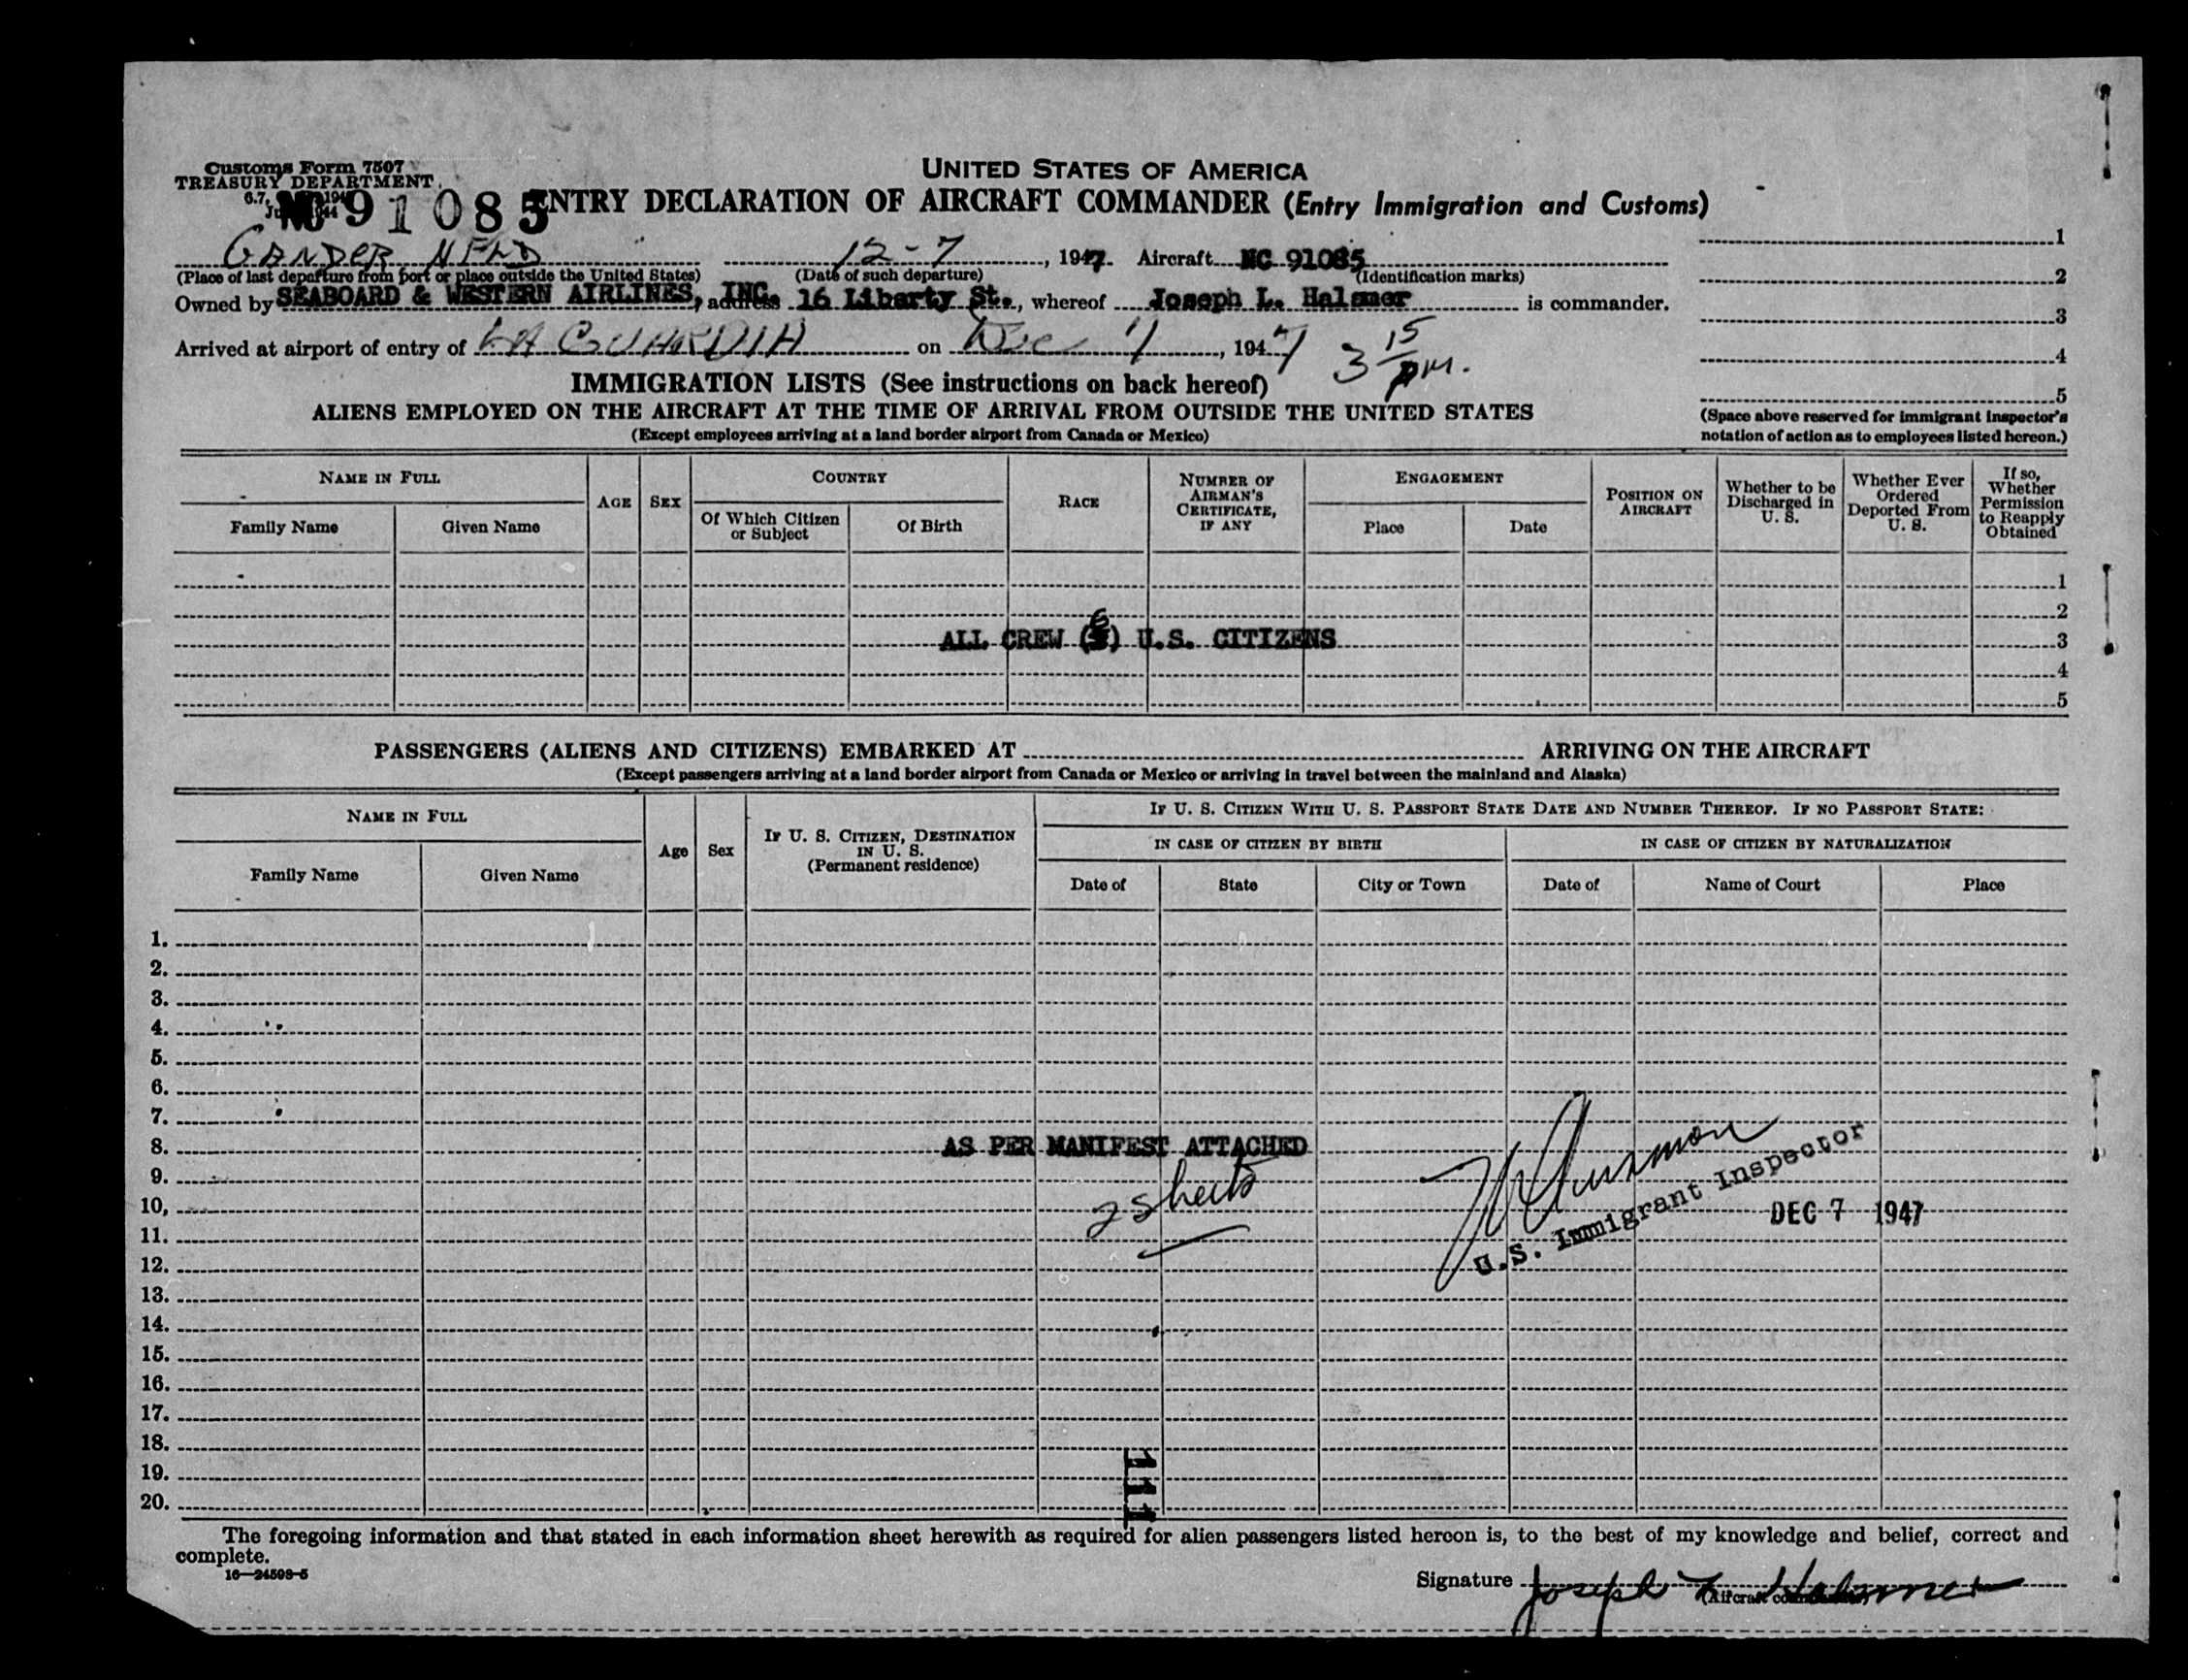 Customs Form 7507
TREASURY DEPARTMENT
UNITED STATES OF AMERICA
No 91085
ENTRY DECLARATION OF AIRCRAFT COMMANDER (Entry Immigration and Customs)
GANDER NFLD 12-7, 1947. Aircraft NC 91085
(Place of last departure from port or place outside the United States) (Date of such departure) (Identification marks)
Owned by SEABOARD & WESTERN AIRLINES, INC. address 16 Liberty St., whereof Joseph L. Halsmer is commander.
Arrived at airport of entry of LA GUARDIA on Dec 7, 1947 3 15 PM.
1
2
3
4
5
(Space above reserved for immigrant inspector's
notation of action as to employees listed hereon.)
IMMIGRATION LISTS (See instructions on back hereof)
ALIENS EMPLOYED ON THE AIRCRAFT AT THE TIME OF ARRIVAL FROM OUTSIDE THE UNITED STATES
(Except employees arriving at a land border airport from Canada or Mexico)
NAME IN FULL
Family Name Given Name
AGE SEX
COUNTRY
Of Which Citizen or Subject Of Birth
RACE
NUMBER OF AIRMAN'S CERTIFICATE, IF ANY
ENGAGEMENT
Place Date
POSITION ON AIRCRAFT
Whether to be Discharged in U. S.
Whether Ever Ordered Deported From U. S.
If so, Whether Permission to Reapply Obtained
1
2
ALL CREW (6) U.S. CITIZENS 3
4
5
PASSENGERS (ALIENS AND CITIZENS) EMBARKED AT ARRIVING ON THE AIRCRAFT
(Except passengers arriving at a land border airport from Canada or Mexico or arriving in travel between the mainland and Alaska)
NAME IN FULL
Family Name Given Name
Age Sex
IF U. S. CITIZEN, DESTINATION IN U. S.
(Permanent residence)
IF U. S. CITIZEN WITH U. S. PASSPORT STATE DATE AND NUMBER THEREOF. IF NO PASSPORT STATE:
IN CASE OF CITIZEN BY BIRTH IN CASE OF CITIZEN BY NATURALIZATION
Date of State City or Town Date of Name of Court Place
1.
2.
3.
4.
5.
6.
7.
8. AS PER MANIFEST ATTACHED
9. 2 sheets
10. U.S. Immigrant Inspector DEC 7 1947
11.
12.
13.
14.
15.
16.
17.
18.
19. 111
20.
The foregoing information and that stated in each information sheet herewith as required for alien passengers listed hereon is, to the best of my knowledge and belief, correct and
complete.
16—24598-5
Signature Joseph L. Halsmer
(Aircraft commander)